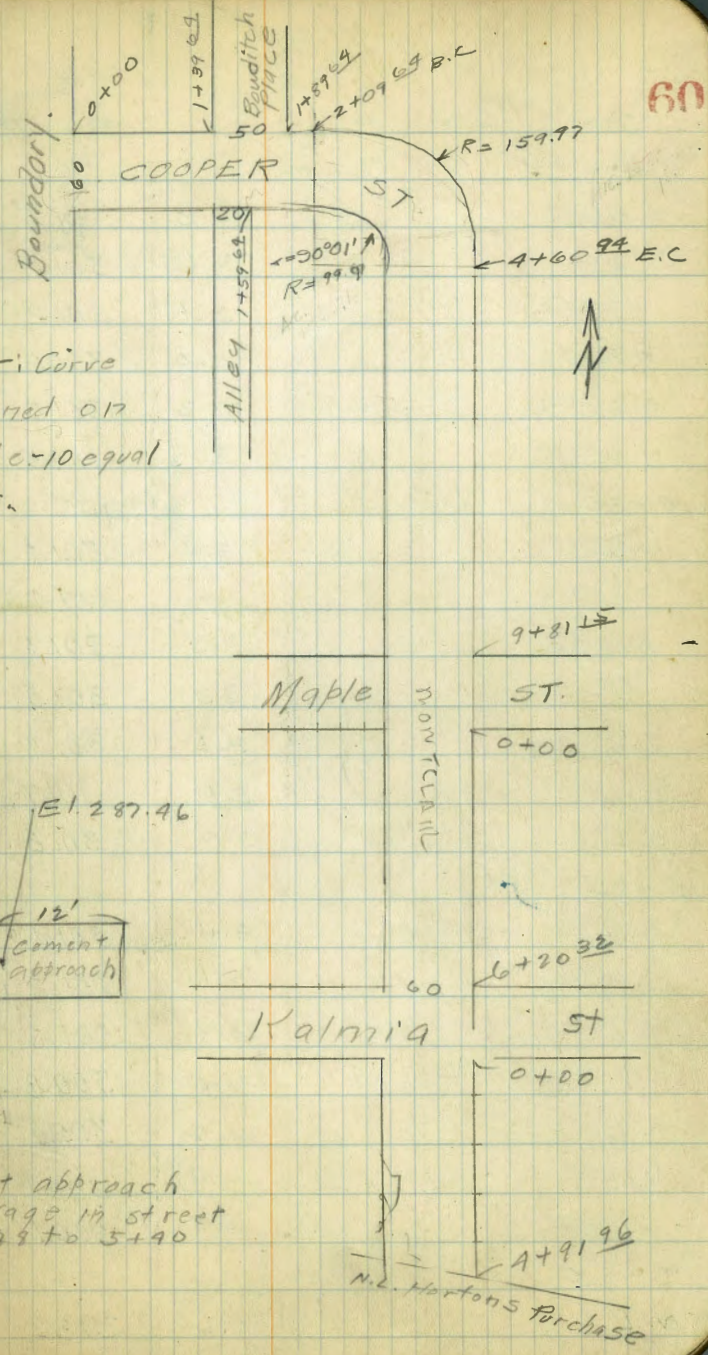 60
Boundary.
0+00
1+39 64
Bowditch
Place
1+89 64
2+09 64 B.C
50
R= 159.97
60
COOPER
ST
20
Alley 1+59 64
90°01'
R= 99.97
4+60 94 E.C
N
Curve
on
10 equal
9+81 15
Maple
ST.
MONTCLAIR
0+00
El. 287.46
12'
Cement
approach
6+20 32
60
Kalmia
St
0+00
approach
in street
to 5+40
4+91 96
N.L. Hortons Purchase